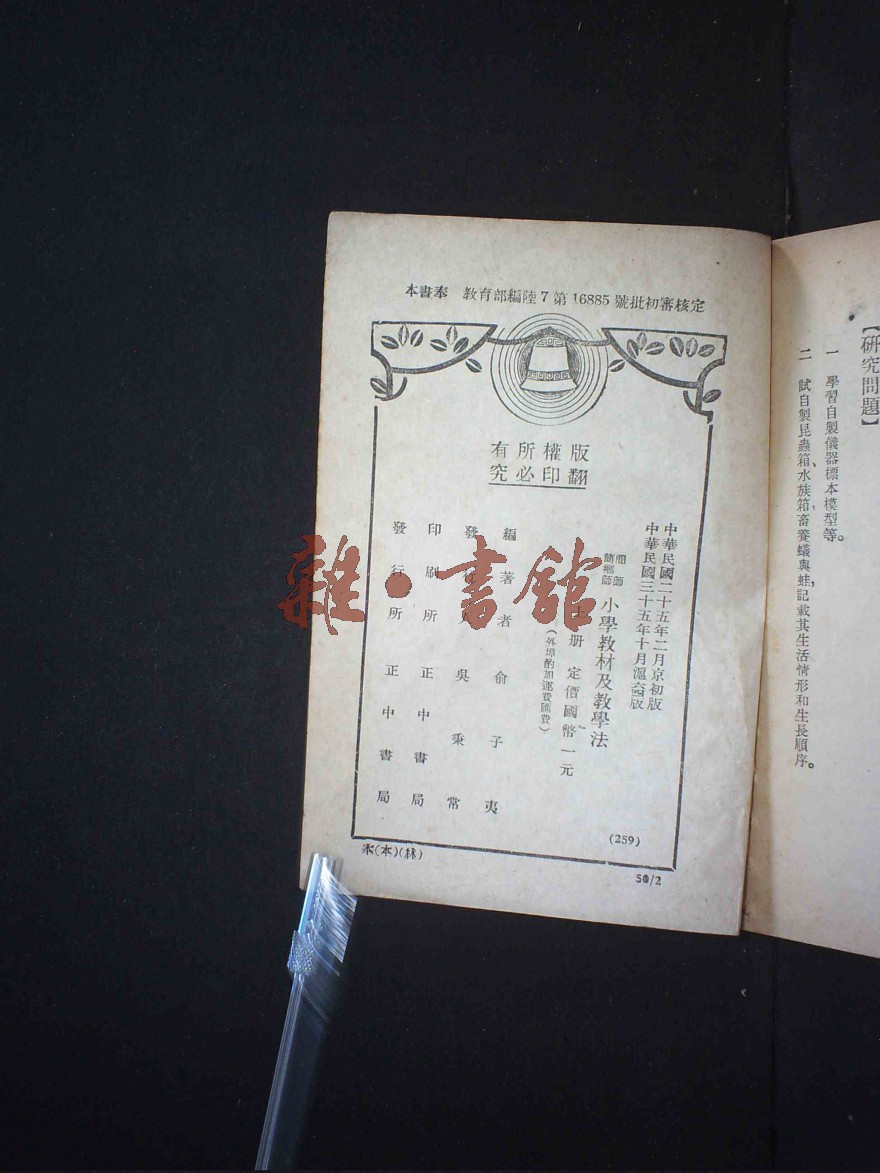 【研究問題】
一 學習自製儀器標本模型等。
二 試自製昆蟲箱、水族箱，畜養蟻與蛙，記載其生活情形和生長順序。
本書奉 教育部編陸7第16885號批初審核定
版權所有
翻印必究
中華民國二十五年二月京初版
中華民國三十五年十月滬 版
簡師
簡鄉師 小學教材及教學法
冊 定價國幣一元
（外埠酌加運費匯費）
編著者 俞子夷
發 吳秉常
印刷所 正中書局
發行所 正中書局
(259)
(本)
/2
雜·書館